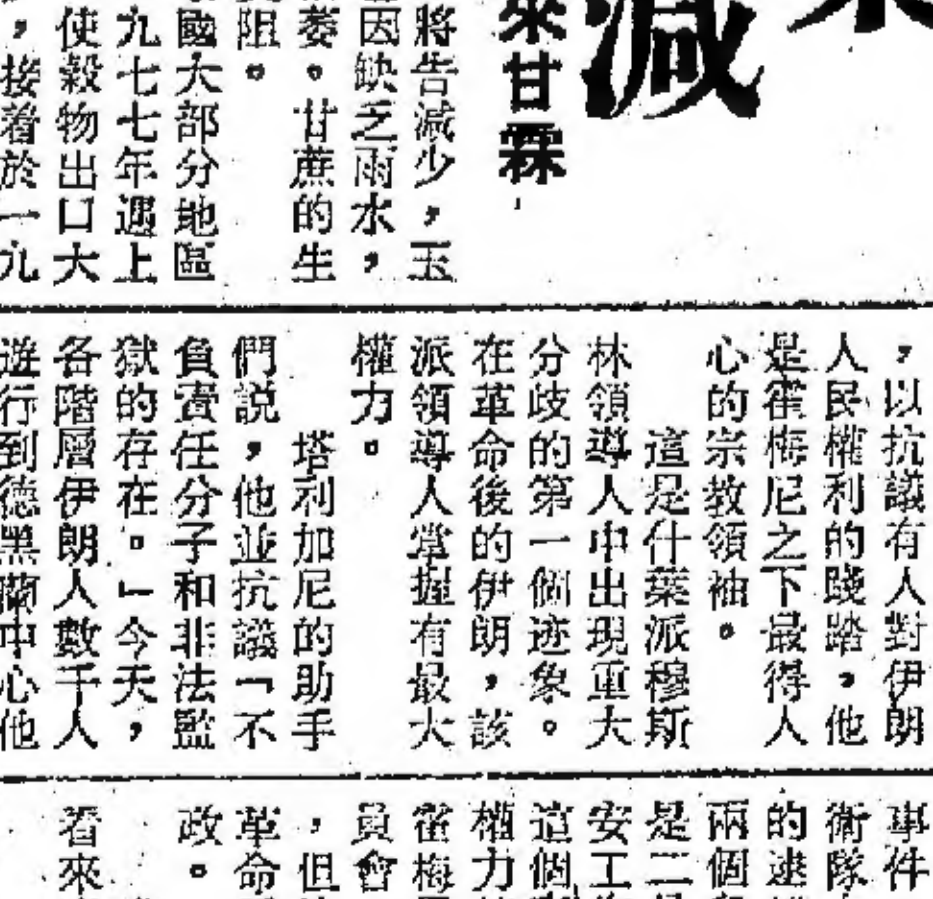 減
來甘霖
將告減少，玉
因缺乏雨水，
萎。甘蔗的生
阻。
國大部分地區
九七七年遇上
使穀物出口大
，接着於一九
，以抗議有人對伊朗
人民權利的踐踏，他
是霍梅尼之下最得人
心的宗教領袖。
這是什葉派穆斯
林領導人中出現重大
分歧的第一個迹象。
在革命後的伊朗，該
派領導人掌握有最大
權力。
塔利加尼的助手
們説，他並抗議「不
負責任分子和非法監
獄的存在。」今天，
各階層伊朗人數千人
遊行到德黑蘭中心他
事件
衛隊
的逮
兩個
是二
安工
這個
權力
霍梅
員會
，但
革命
政。
看來